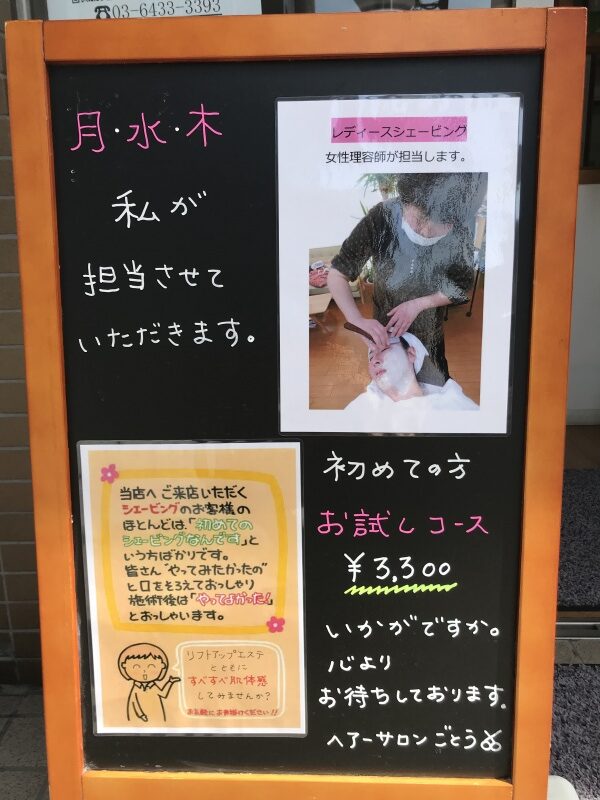 ☎03-6433-3393
月・水・木
私が
担当させて
いただきます。
レディースシェービング
女性理容師が担当します。
当店へご来店いただく
シェービングのお客様の
ほとんどは、「初めての
シェービングなんです」と
いう方ばかりです。
皆さん"やってみたかったの"
と口をそろえておっしゃり
施術後は「やってよかった!」
とおっしゃいます。
リフトアップエステ
とともに
すべすべ肌体感
してみませんか?
お気軽にお声掛けください!!
初めての方
お試しコース
¥3,300
いかがですか。
心より
お待ちしております。
ヘアーサロンごとう